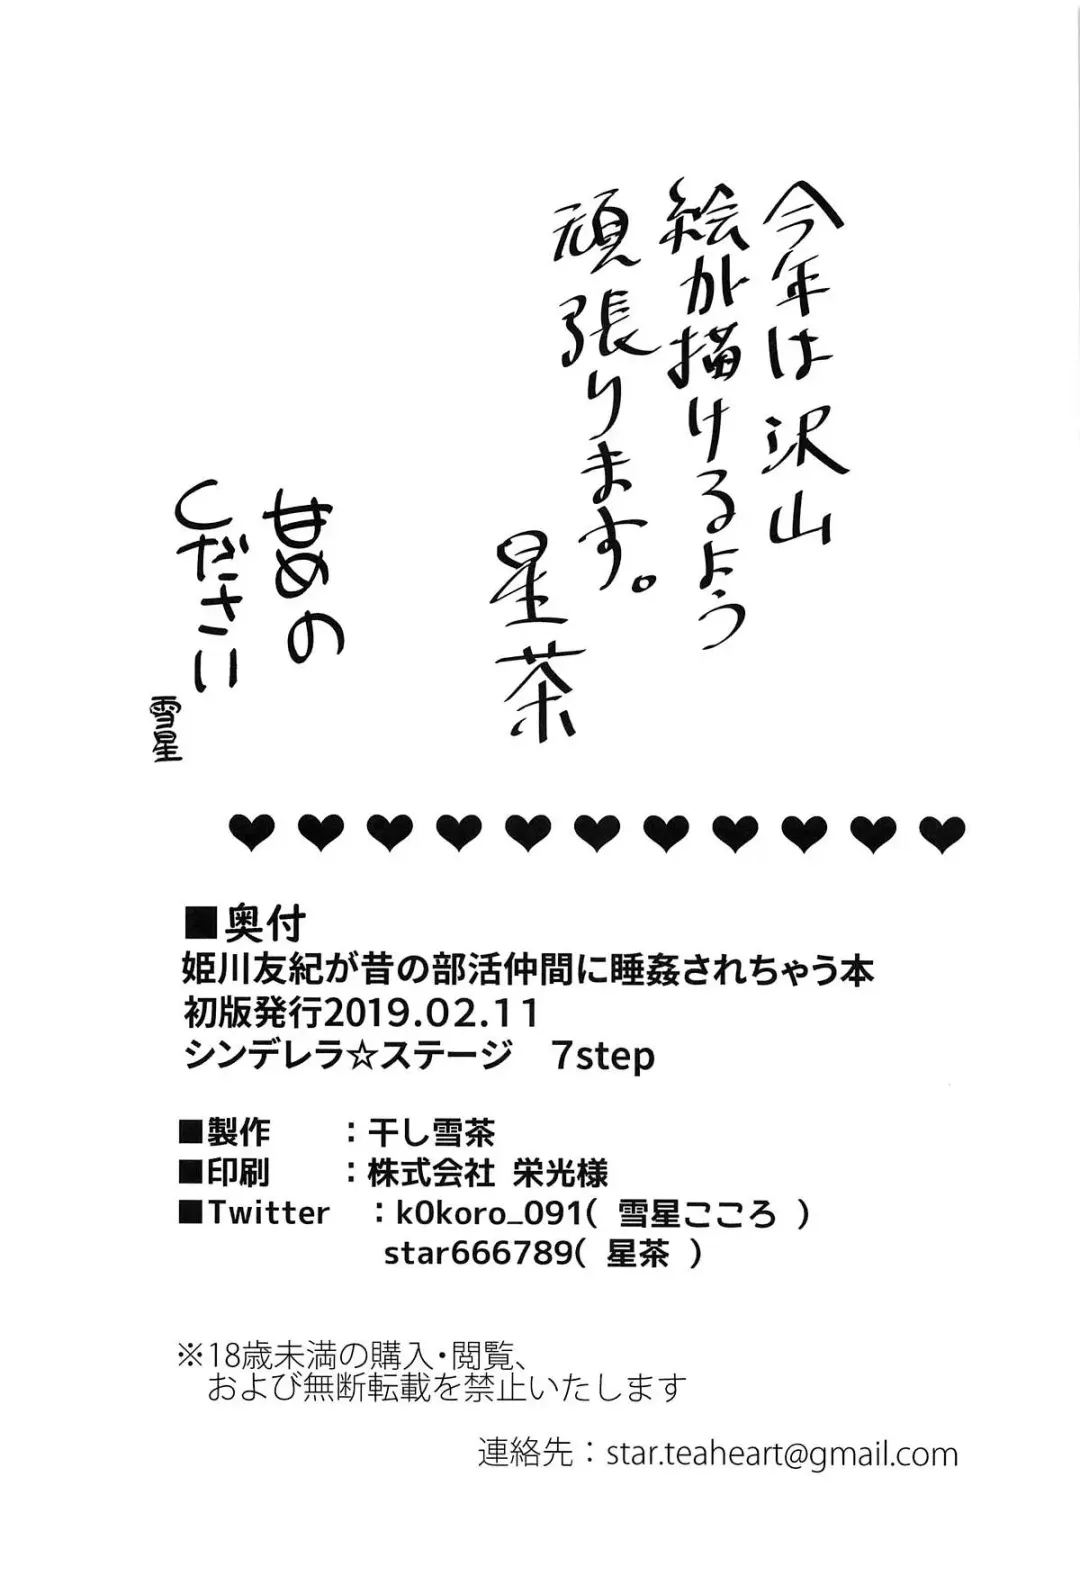 今年は沢山
絵が描けるよう
頑張ります。
星茶
甘めの
しださい
雪星
■奥付
姫川友紀が昔の部活仲間に睡姦されちゃう本
初版発行2019.02.11
シンデレラ☆ステージ　7step
■製作　　：干し雪茶
■印刷　　：株式会社 栄光様
■Twitter　：k0koro_091( 雪星こころ )
star666789( 星茶 )
※18歳未満の購入・閲覧、
および無断転載を禁止いたします
連絡先：star.teaheart@gmail.com